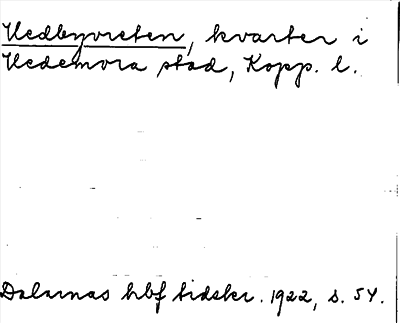 Hedbyvreten, kvarter i
Hedemora stad, Kopp. l.
Dalarnas hbf tidskr. 1922, s. 54.